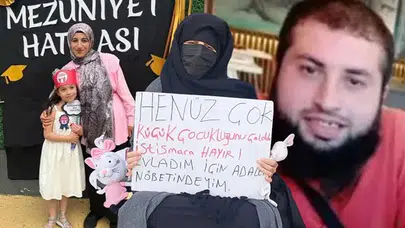 MEZUNİYET
HATIRASI
HENÜZ ÇOK
KÜÇÜK ÇOCUKLUĞUNU Çaldılar
İSTİSMARA HAYIR!
EVLADIM İÇİN ADALET
NÖBETİNDEYİM.